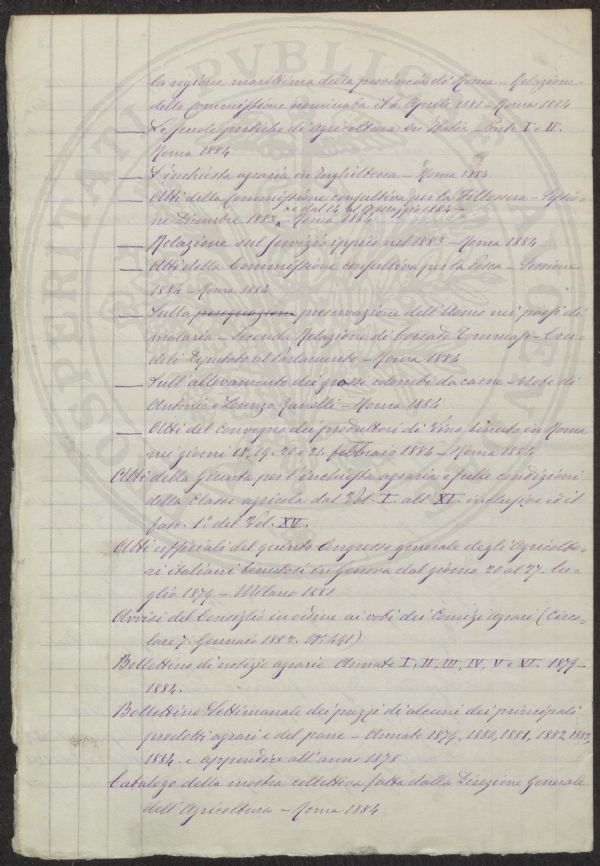 la regione marittima della provincia di Roma – Relazione
della Commissione nominata il 2 Aprile 1881 – Roma 1884
— Le scuole pratiche di agricoltura in Italia – Parte I e II.
Roma 1884
— L'inchiesta agraria in Inghilterra – Roma 1884
— Atti della Commissione consultiva per la Fillossera – Sessio=
ne Dicembre 1883 e dal 14 al 17 maggio 1884 – Roma 1884
— Relazione sul servizio ippico nel 1883 – Roma 1884
— Atti della Commissione consultiva per la Pesca – Sessione
1884 – Roma 1884
— Sulla preservazione dell'Uomo nei paesi di
malaria – Seconda Relazione di Corrado Tommasi-Cru=
deli Deputato al Parlamento – Roma 1884
— Sull'allevamento dei grossi colombi da carne – Note di
Antonio e Lorenzo Zanelli – Roma 1884
— Atti del Convegno dei produttori di Vino, tenuto in Roma
nei giorni 18, 19, 20 e 21 febbraio 1884 – Roma 1884
Atti della Giunta per l'inchiesta agraria e sulle condizioni
della classe agricola dal Vol. I. all'XI. inclusive ed il
fasc. 1° del Vol. XV.
Atti ufficiali del quinto Congresso generale degli Agricolto=
ri italiani tenutosi in Genova dal giorno 20 al 27 lu=
glio 1879 – Milano 1881
Avvisi del Consiglio in ordine ai voti dei Comizi Agrari (Circo=
lare 7 Gennaio 1882 N° 441)
Bollettino di notizie agrarie Annate I, II, III, IV, V e VI. 1879–
1884.
Bollettino Settimanale dei prezzi di alcuni dei principali
prodotti agrari e del pane – Annate 1879, 1880, 1881, 1882, 1883,
1884 e appendice all'anno 1878
Catalogo della mostra collettiva fatta dalla Direzione Generale
dell'Agricoltura – Roma 1884